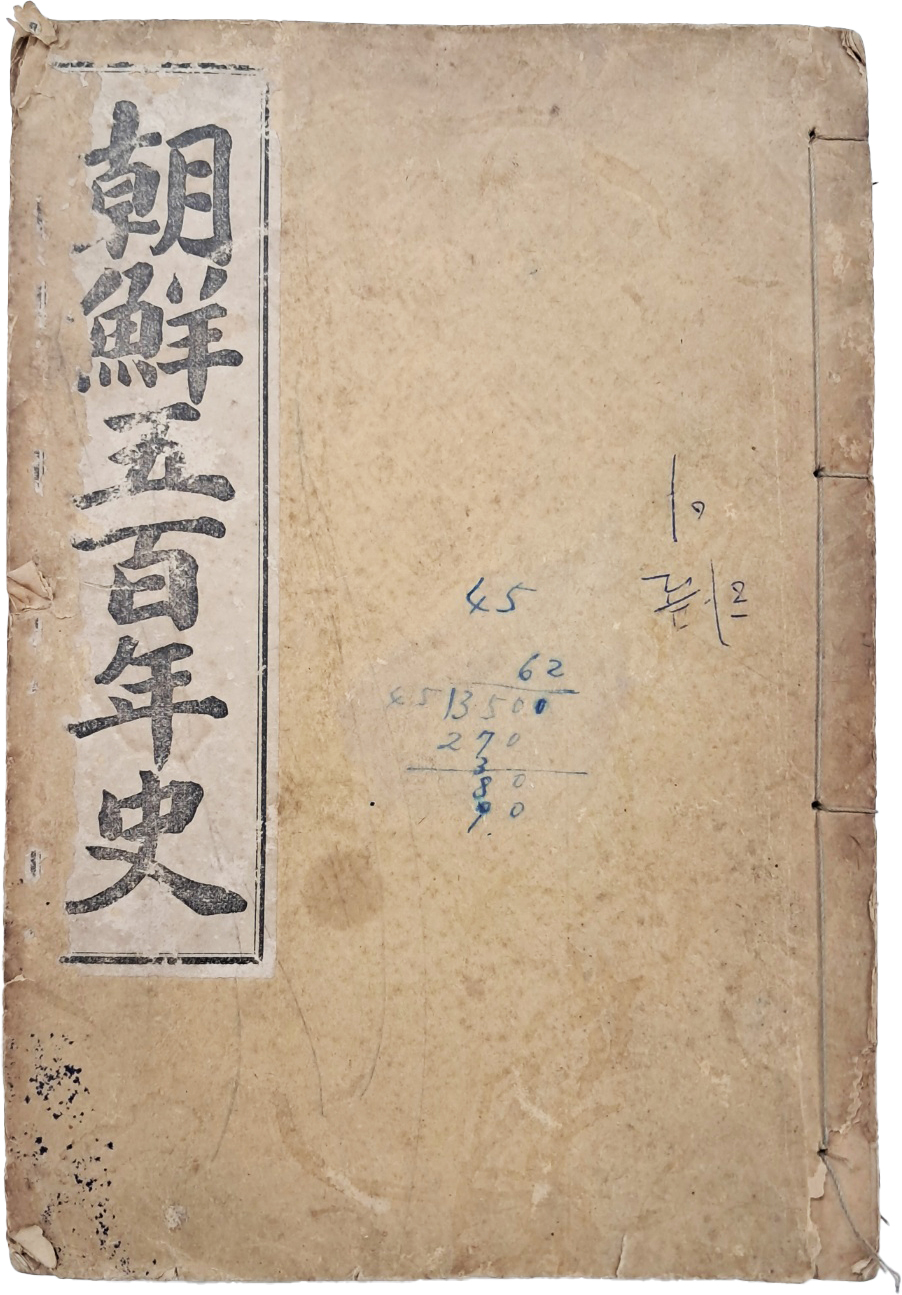 朝鮮五百年史
45
62
45)13500
270
380
90